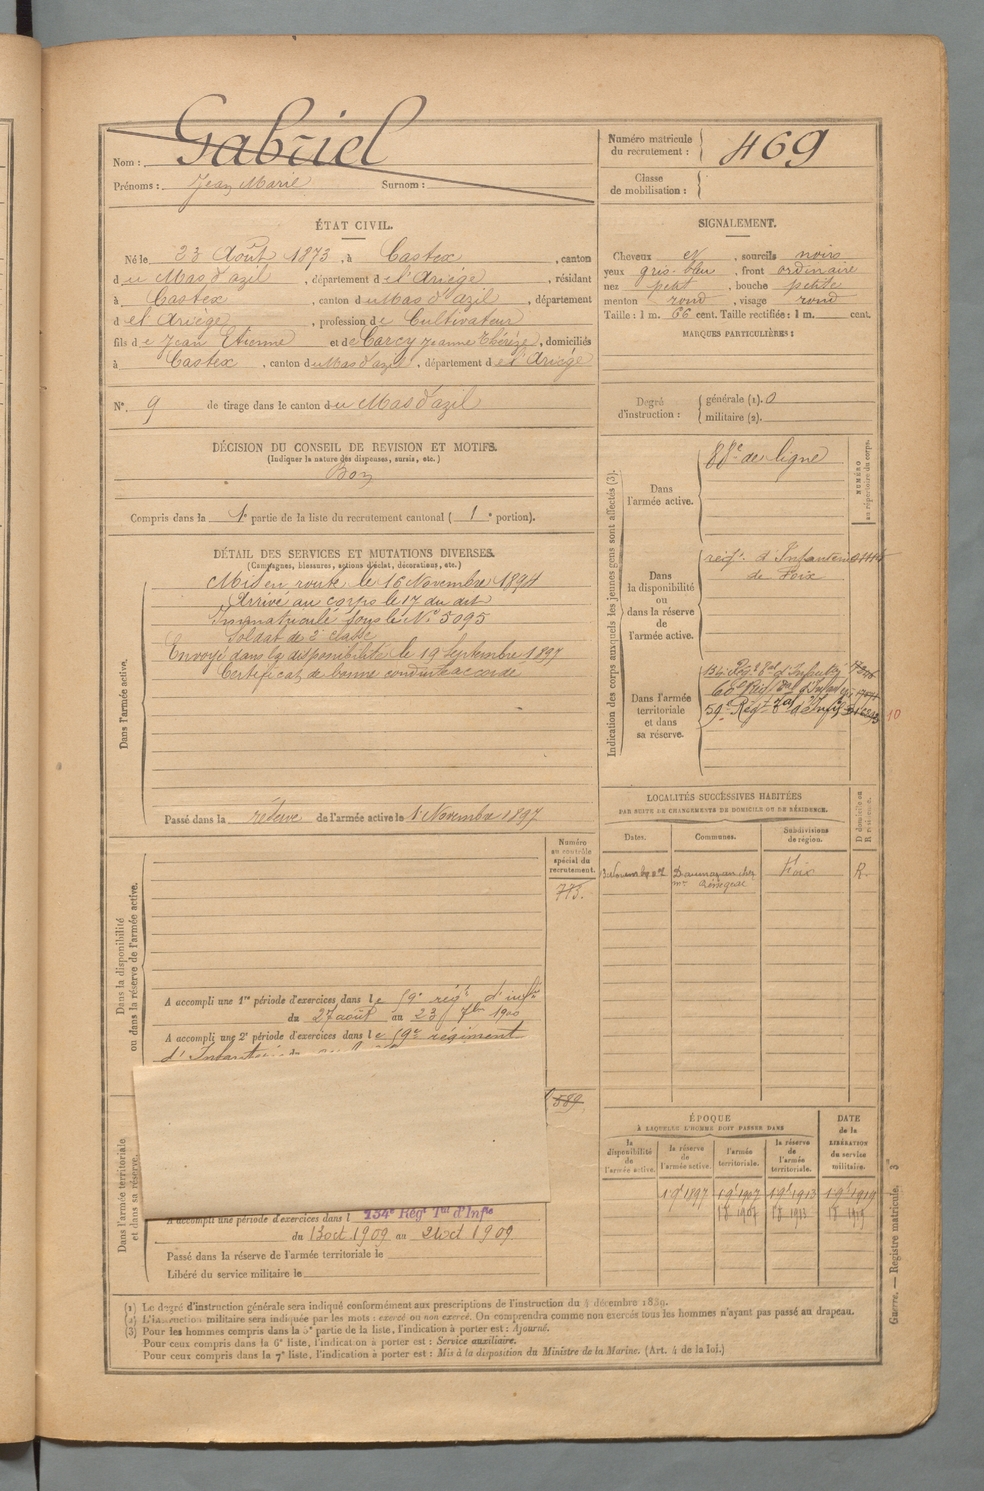 Nom : Gabriel
Prénoms : Jean Marie Surnom :
Numéro matricule du recrutement : 469
Classe de mobilisation :
ÉTAT CIVIL.
Né le 23 Août 1873, à Castex, canton
du Mas d'azil, département de l'Ariège, résidant
à Castex, canton du Mas d'azil, département
de l'Ariège, profession de Cultivateur
fils de Jean Etienne et de Carcy Jeanne Thérèze, domiciliés
à Castex, canton du Mas d'azil, département de l'Ariège
N° 9 de tirage dans le canton du Mas d'azil
SIGNALEMENT.
Cheveux et, sourcils noirs
yeux gris-bleu, front ordinaire
nez petit, bouche petite
menton rond, visage rond
Taille : 1 m. 66 cent. Taille rectifiée : 1 m. cent.
MARQUES PARTICULIÈRES :
Degré d'instruction : générale (1). 0
militaire (2).
DÉCISION DU CONSEIL DE REVISION ET MOTIFS.
(Indiquer la nature des dispenses, sursis, etc.)
Bon
Compris dans la 1e partie de la liste du recrutement cantonal ( 1e portion).
DÉTAIL DES SERVICES ET MUTATIONS DIVERSES.
(Campagnes, blessures, actions d'éclat, décorations, etc.)
Dans l'armée active.
Mis en route le 16 Novembre 1894
Arrivé au corps le 17 du dit
Immatriculé sous le N° 5095
Soldat de 2e classe
Envoyé dans la disponibilité le 19 Septembre 1897
Certificat de bonne conduite accordé
Passé dans la réserve de l'armée active le 1 Novembre 1897
Indication des corps auxquels les jeunes gens sont affectés (3).
NUMÉRO au répertoire du corps.
Dans l'armée active.
88e de ligne
Dans la disponibilité ou dans la réserve de l'armée active.
régt. d'Infanterie
de Foix
Dans l'armée territoriale et dans sa réserve.
134e Régt tal d'Infanterie
60e Régt tal d'Infie
59e Régt tal d'Infie
10
LOCALITÉS SUCCESSIVES HABITÉES
PAR SUITE DE CHANGEMENTS DE DOMICILE OU DE RÉSIDENCE.
Dates. Communes. Subdivisions de région. D domicile ou R résidence.
Foix R.
Numéro au contrôle spécial du recrutement.
773.
Dans la disponibilité ou dans la réserve de l'armée active.
A accompli une 1re période d'exercices dans le 59e régt d'infie
du 27 août au 23 7bre 1900
A accompli une 2e période d'exercices dans le 59e régiment
d'Infanterie du
589
Dans l'armée territoriale et dans sa réserve.
A accompli une période d'exercices dans l 134e Régt Tal d'Infie
du 13 oct 1909 au 21 oct 1909
Passé dans la réserve de l'armée territoriale le
Libéré du service militaire le
ÉPOQUE
À LAQUELLE L'HOMME DOIT PASSER DANS
la disponibilité de l'armée active. la réserve de l'armée active. l'armée territoriale. la réserve de l'armée territoriale. DATE de la LIBÉRATION du service militaire.
1 9bre 1897 1 9bre 1907 1 9bre 1913 1 9bre 1919
1 8 1907 1 8 1913 1 8 1919
(1) Le degré d'instruction générale sera indiqué conformément aux prescriptions de l'instruction du 4 décembre 1889.
(2) L'instruction militaire sera indiquée par les mots : exercé ou non exercé. On comprendra comme non exercés tous les hommes n'ayant pas passé au drapeau.
(3) Pour les hommes compris dans la 5e partie de la liste, l'indication à porter est : Ajourné.
Pour ceux compris dans la 6e liste, l'indication à porter est : Service auxiliaire.
Pour ceux compris dans la 7e liste, l'indication à porter est : Mis à la disposition du Ministre de la Marine. (Art. 4 de la loi.)
Guerre. — Registre matricule. 3